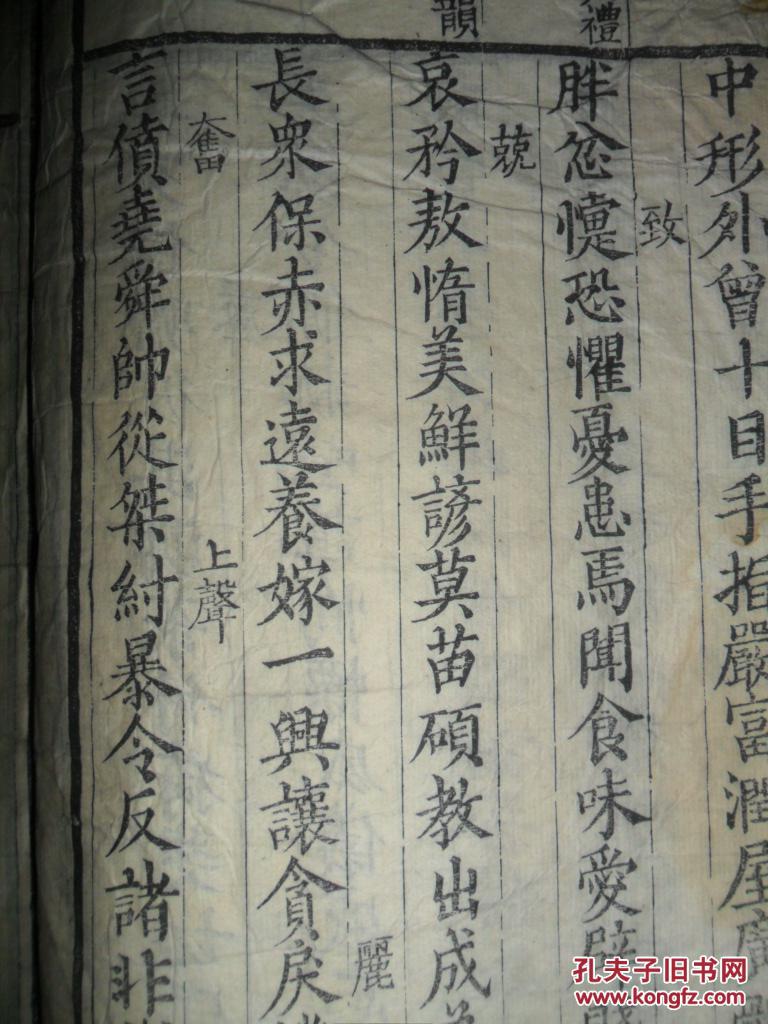 禮
韻
中形外曾十目手指嚴富潤屋廣
致
胖忿懥恐懼憂患焉聞食味愛辟
兢
哀矜敖惰美鮮諺莫苗碩教出成
長衆保赤求遠養嫁一興讓貪戾
麗
奮
上聲
言僨堯舜帥從桀紂暴令反諸非
孔夫子旧书网
www.kongfz.com